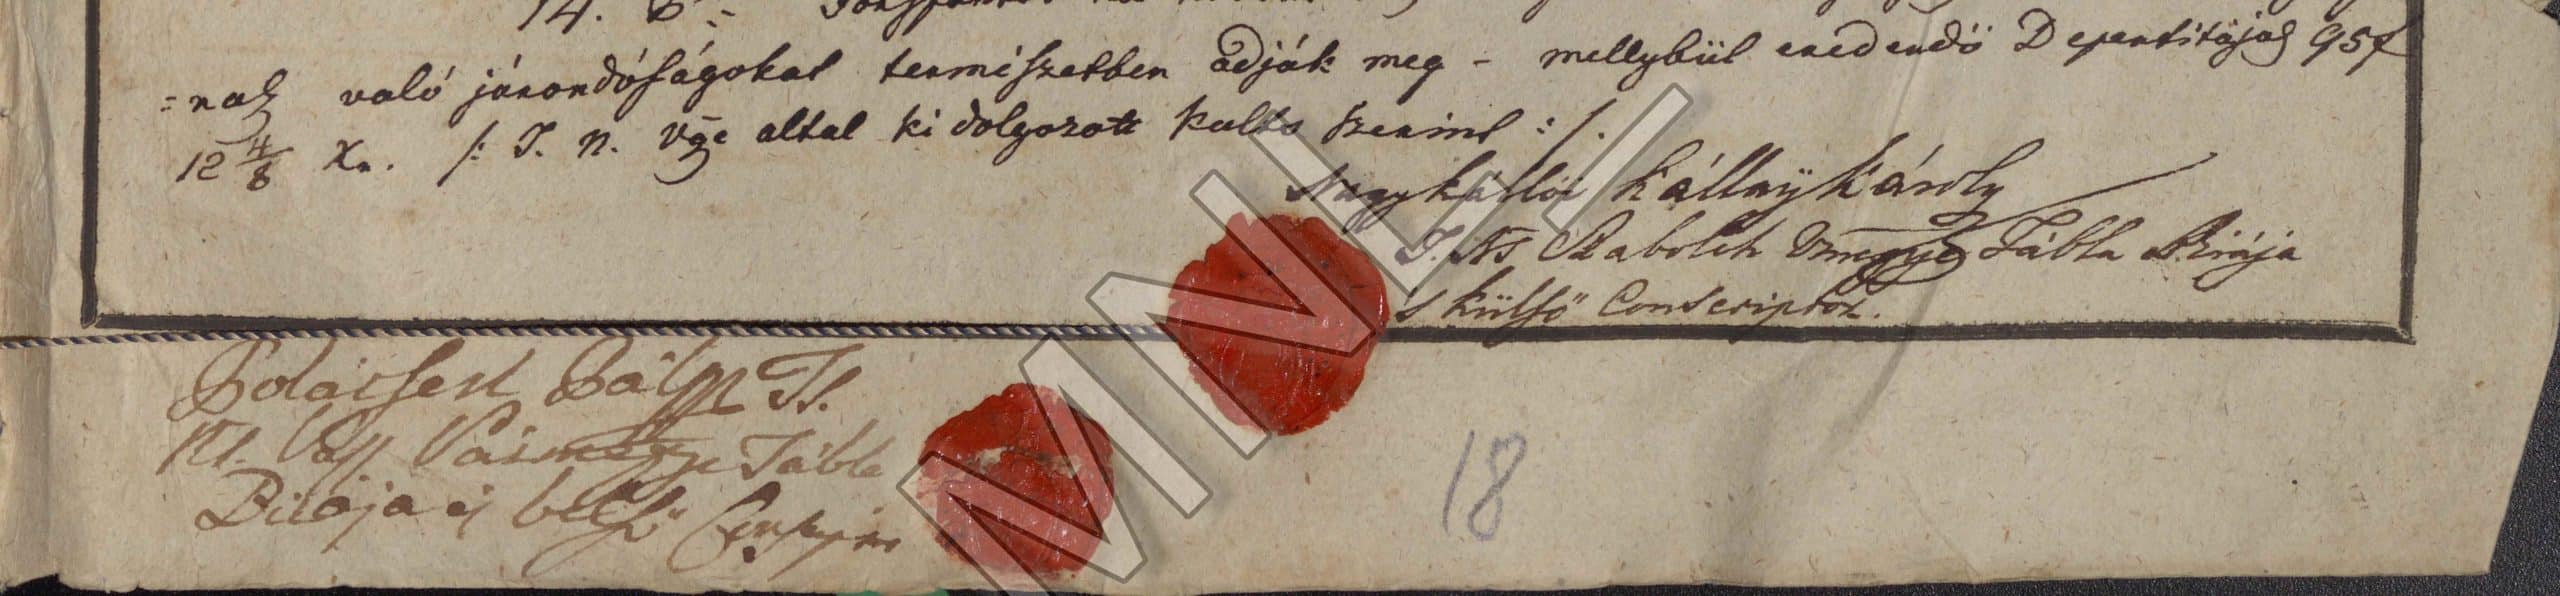 14. B.
=nak való járondóságokat termiszetben adják meg - mellybül eredendő Deperditájok 95f
12 4/8 Xr. /: T. N. Vgye altal ki dolgozott kults szerint :/.
Nagy Kállói Kállaÿ Károly
T. Ns Szabolch Vmegye Tábla Birája
s külső Conscriptor.
Pál Ts.
Ns. Vas Vármegye Tábla
Birája és belső
18
MNL